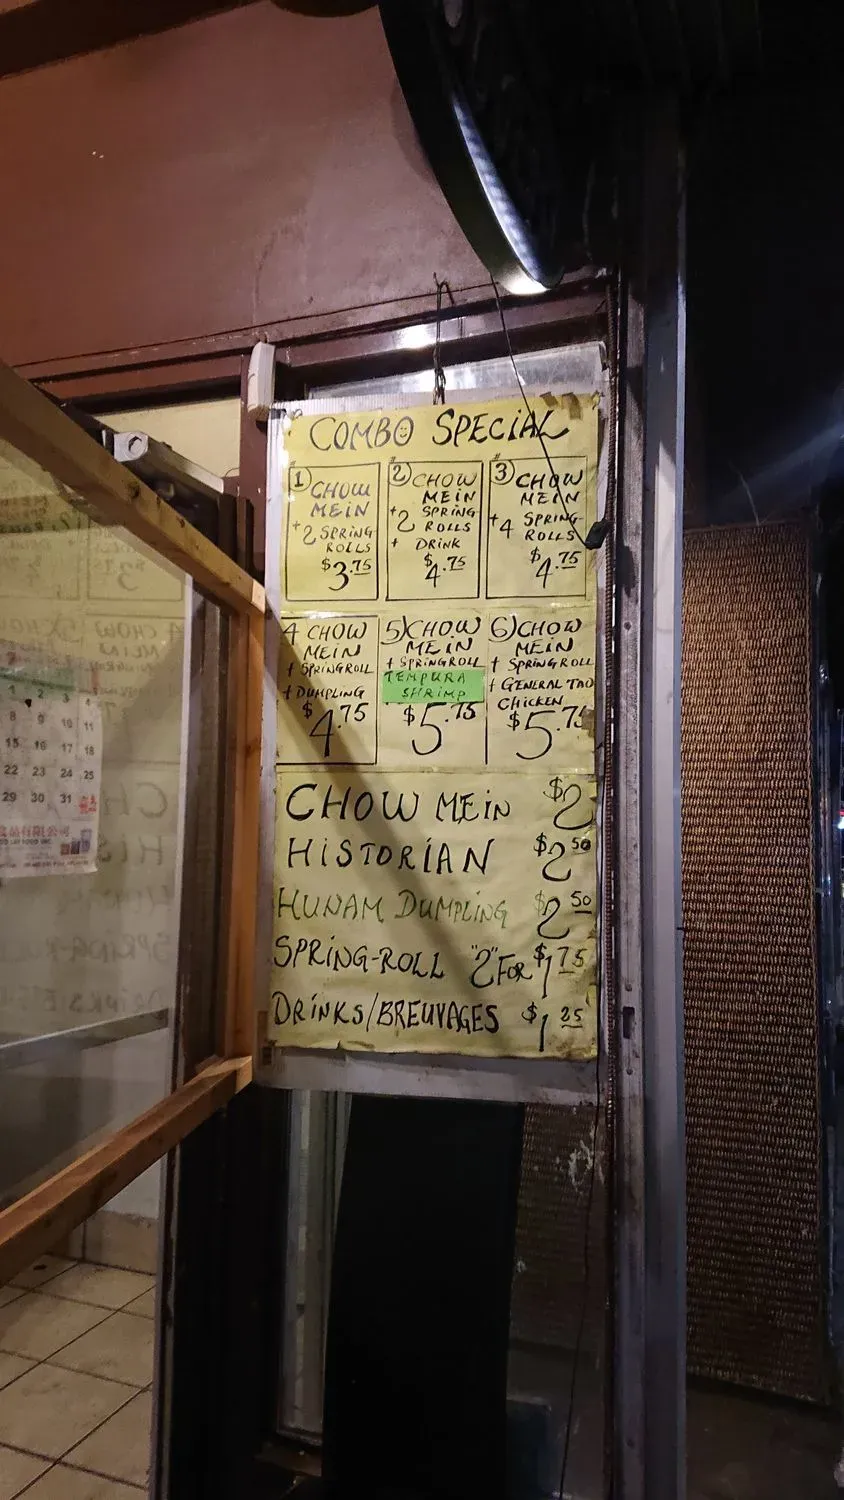 COMBO SPECIAL
#1 CHOW
MEIN
+2 SPRING
ROLLS
$3.75
#2 CHOW
MEIN
+2 SPRING
ROLLS
+ DRINK
$4.75
#3 CHOW
MEIN
+4 SPRING
ROLLS
$4.75
4 CHOW
MEIN
+ SPRINGROLL
+ DUMPLING
$4.75
5) CHOW
MEIN
+ SPRINGROLL
TEMPURA
SHRIMP
$5.75
6) CHOW
MEIN
+ SPRINGROLL
+ GENERAL TAO
CHICKEN
$5.75
CHOW MEIN $2
HISTORIAN $2.50
HUNAM DUMPLING $2.50
SPRING-ROLL "2" FOR $1.75
DRINKS/BREUVAGES $1.25
1 2 3 4
8 9 10 11
15 16 17 18
22 23 24 25
29 30 31
品有限公司